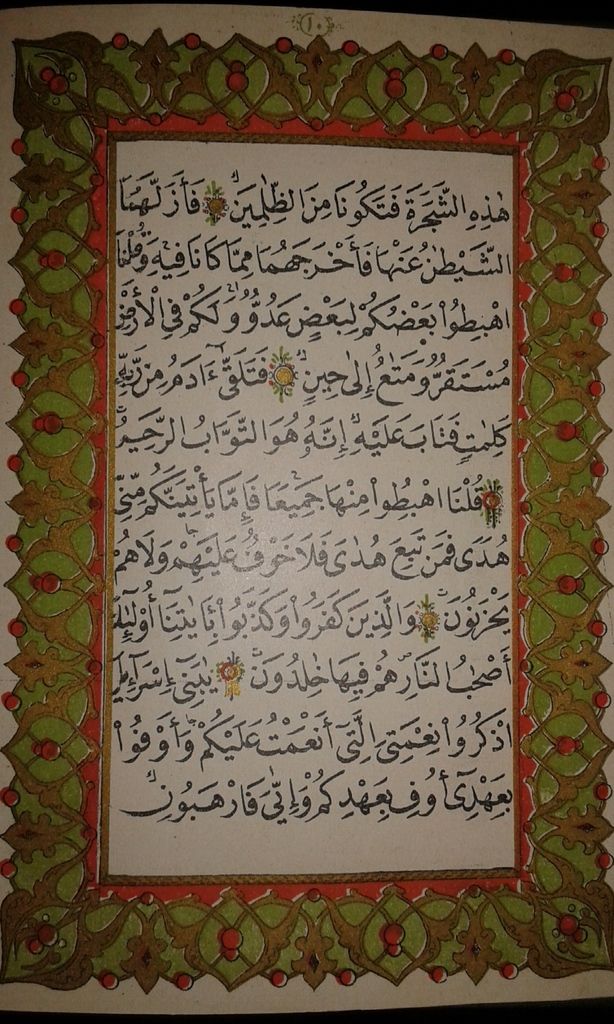 ١٠
هَٰذِهِ الشَّجَرَةَ فَتَكُونَا مِنَ الظَّٰلِمِينَ فَأَزَلَّهُمَا
الشَّيْطَٰنُ عَنْهَا فَأَخْرَجَهُمَا مِمَّا كَانَا فِيهِ وَقُلْنَا
اهْبِطُوا۟ بَعْضُكُمْ لِبَعْضٍ عَدُوٌّ وَلَكُمْ فِى الْأَرْضِ
مُسْتَقَرٌّ وَمَتَٰعٌ إِلَىٰ حِينٍ فَتَلَقَّىٰٓ ءَادَمُ مِن رَّبِّهِ
كَلِمَٰتٍ فَتَابَ عَلَيْهِ إِنَّهُۥ هُوَ التَّوَّابُ الرَّحِيمُ
قُلْنَا اهْبِطُوا۟ مِنْهَا جَمِيعًا فَإِمَّا يَأْتِيَنَّكُم مِّنِّى
هُدًى فَمَن تَبِعَ هُدَاىَ فَلَا خَوْفٌ عَلَيْهِمْ وَلَا هُمْ
يَحْزَنُونَ وَالَّذِينَ كَفَرُوا۟ وَكَذَّبُوا۟ بِـَٔايَٰتِنَآ أُو۟لَٰٓئِكَ
أَصْحَٰبُ النَّارِ هُمْ فِيهَا خَٰلِدُونَ يَٰبَنِىٓ إِسْرَٰٓءِيلَ
اذْكُرُوا۟ نِعْمَتِىَ الَّتِىٓ أَنْعَمْتُ عَلَيْكُمْ وَأَوْفُوا۟
بِعَهْدِىٓ أُوفِ بِعَهْدِكُمْ وَإِيَّٰىَ فَارْهَبُونِ